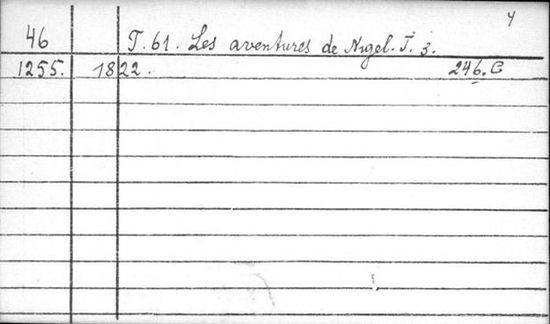 4
46 T. 61. Les aventures de Nigel. T. 3.
1255. 1822. 246. C